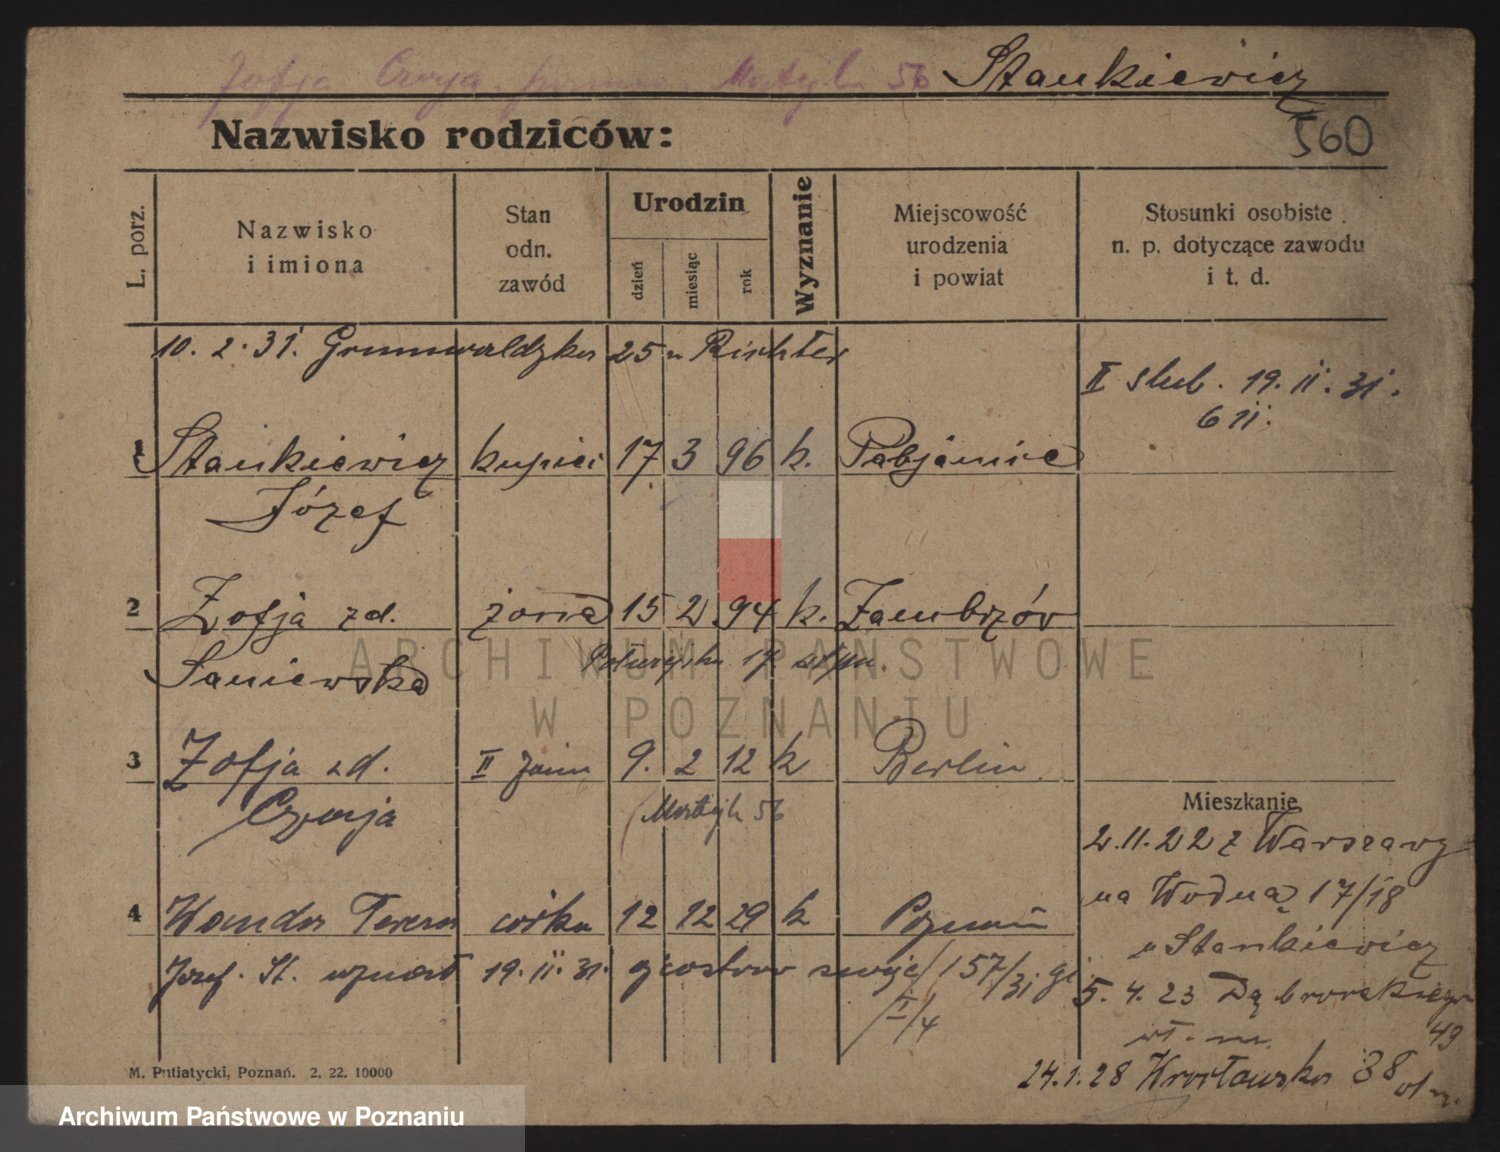 Zofja Czyja Motyl 56 Stankiewicz
Nazwisko rodziców:
560
L. porz.
Nazwisko
i imiona
Stan
odn.
zawód
Urodzin
dzień
miesiąc
rok
Wyznanie
Miejscowość
urodzenia
i powiat
Stosunki osobiste
n. p. dotyczące zawodu
i t. d.
10. 2. 31. Grunwaldzka 25 u Richter
II ślub. 19. II. 31.
6 II.
1 Stankiewicz kupiec 17 3 96 k. Pabjanice
Józef
2 Zofja zd. żona 15 2 94 k. Zambrzów
Saniewska
17
3 Zofja zd. II żona 9. 2 12 k Berlin
56
Mieszkanie
2.11.22 z Warszawy
4 Wanda Teresa córka 12 12 29 k Poznań
na Wodną 17/18
u Stankiewicz
Józef. St. uznał 19. II. 31. ojcostwo swoje 157/31
I/4
5. 4. 23 Dąbrowskiego
49
24.1.28 Wrocławska 38
M. Putiatycki, Poznań. 2. 22. 10000
ARCHIWUM PAŃSTWOWE
W POZNANIU
Archiwum Państwowe w Poznaniu